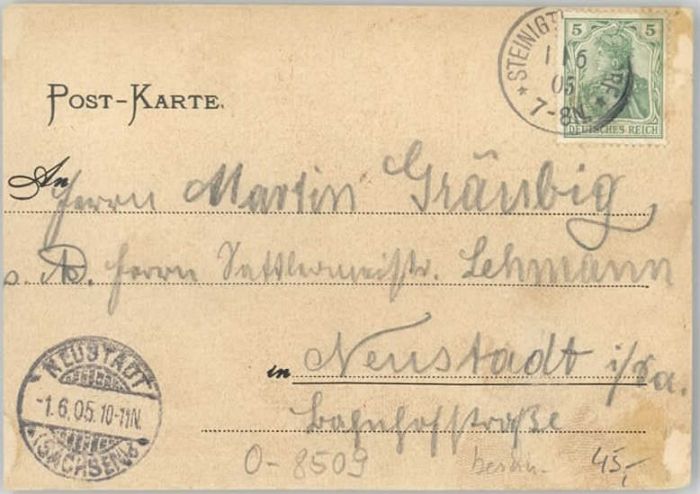 POST-KARTE.
STEINIGT
1 1 6
05
7-8N.
5 5
DEUTSCHES REICH
An Herrn Martin Gräubig
Herrn Sattlermeistr. Lehmann
in Neustadt i/Sa.
Bahnhofstraße
NEUSTADT
-1.6.05.10-11N.
(SACHSEN)
0-8509 45,-